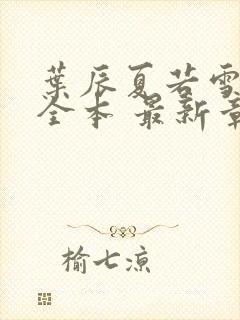 葉辰夏若雪
全本 最新章
榆七凉